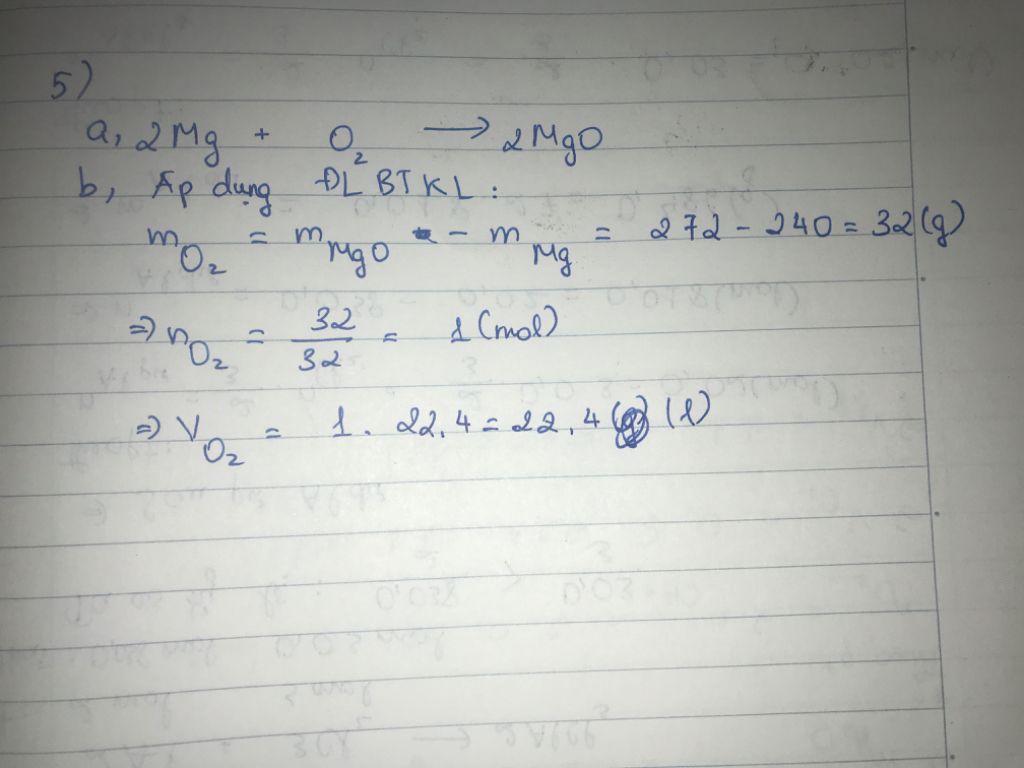 5)
a, 2Mg + O₂ → 2MgO
b, Áp dụng ĐL BTKL:
m O₂ = m MgO - m Mg = 272 - 240 = 32 (g)
=> n O₂ = 32/32 = 1 (mol)
=> V O₂ = 1. 22.4 = 22.4 (l)